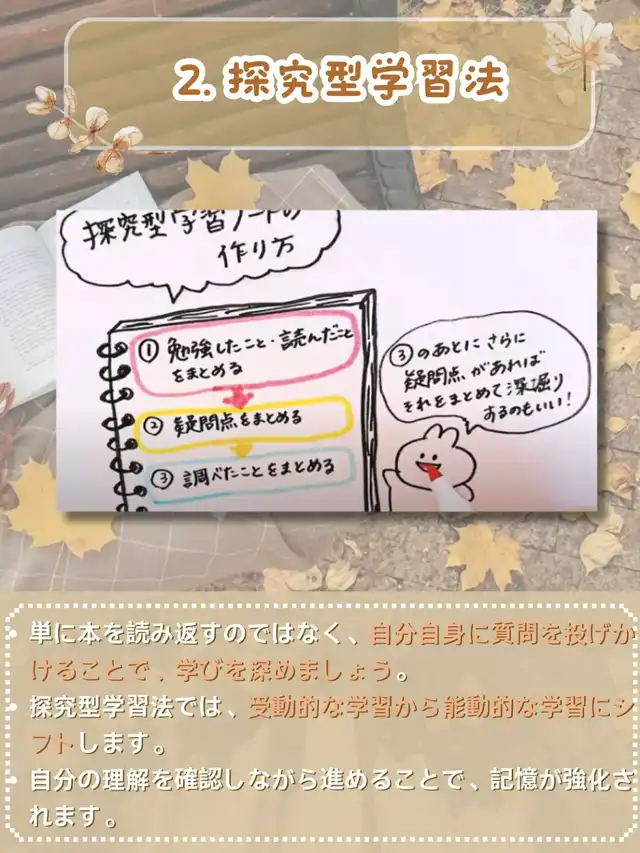 2. 探究型学習法
探究型学習ノートの
作り方
① 勉強したこと・読んだこと
をまとめる
② 疑問点をまとめる
③ 調べたことをまとめる
③のあとにさらに
疑問点があれば
それをまとめて深堀り
するのもいい!
• 単に本を読み返すのではなく、自分自身に質問を投げか
けることで、学びを深めましょう。
• 探究型学習法では、受動的な学習から能動的な学習にシ
フトします。
• 自分の理解を確認しながら進めることで、記憶が強化さ
れます。